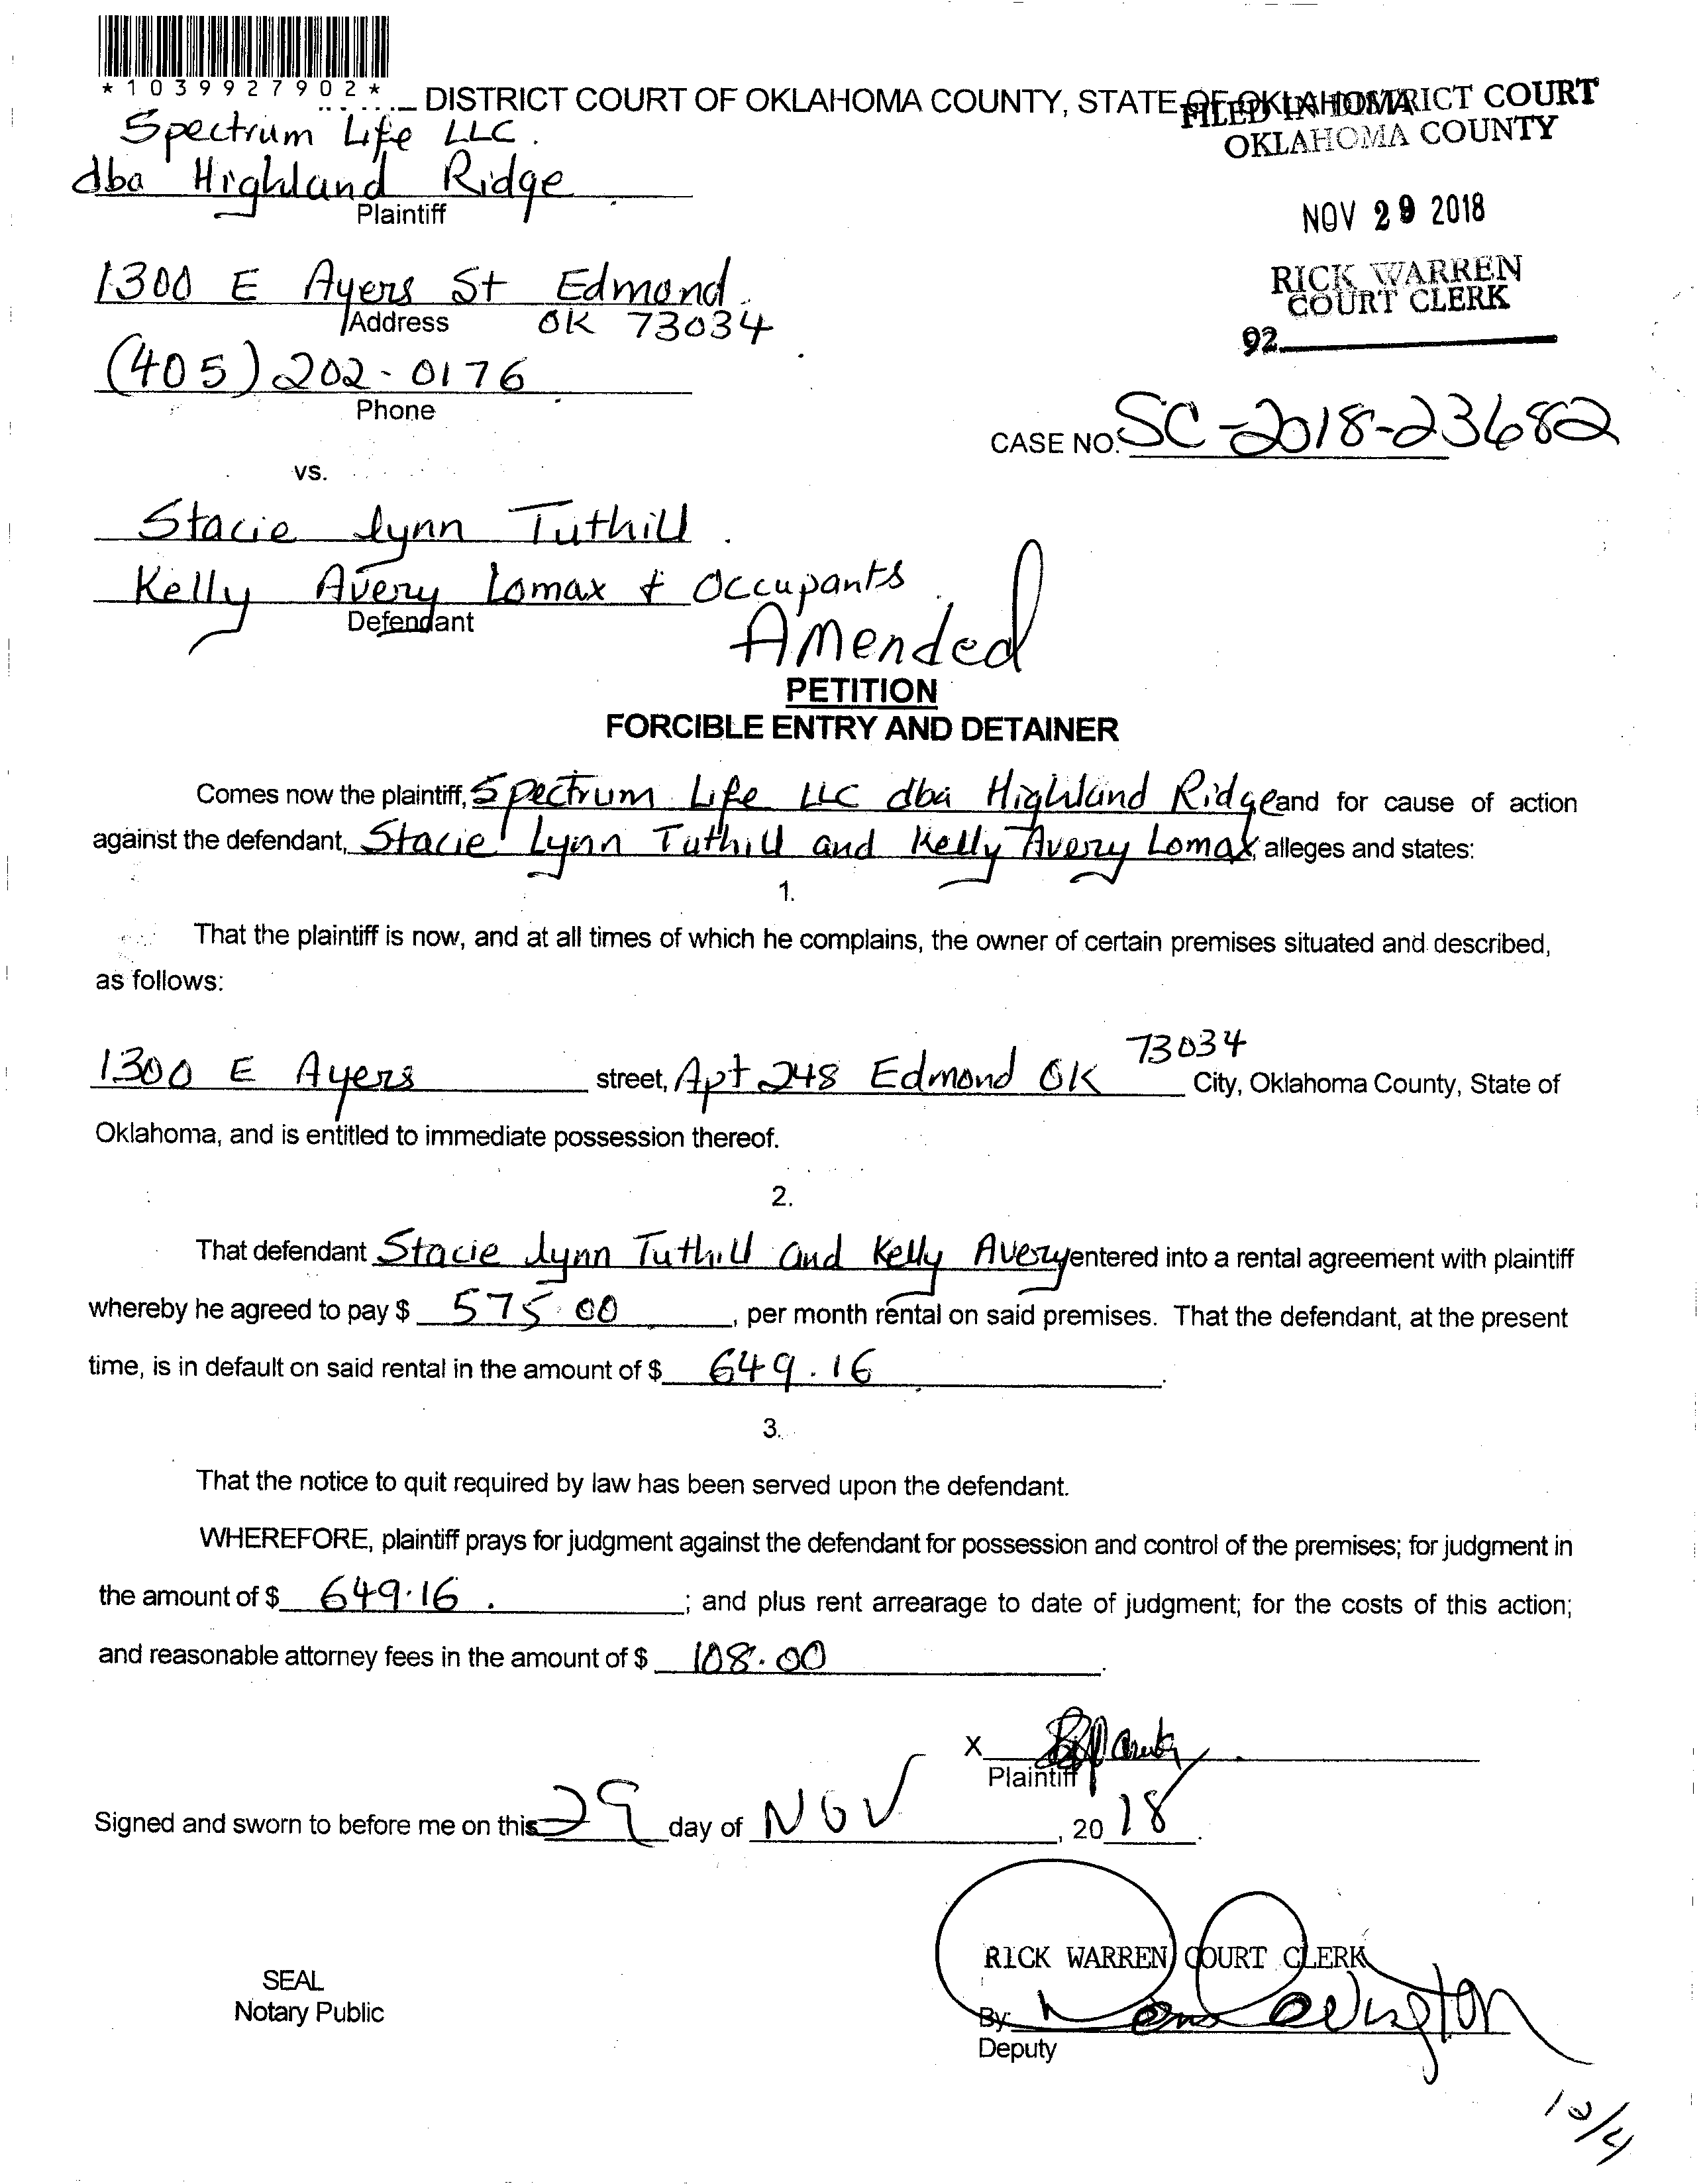 *1039927902*
DISTRICT COURT OF OKLAHOMA COUNTY, STATE OF OKLAHOMA
FILED IN DISTRICT COURT
OKLAHOMA COUNTY
Spectrum Life LLC.
dba Highland Ridge
Plaintiff
NOV 29 2018
1300 E Ayers St Edmond
Address OK 73034
RICK WARREN
COURT CLERK
92
(405) 202-0176
Phone
CASE NO. SC-2018-23682
vs.
Stacie Lynn Tuthill
Kelly Avery Lomax + Occupants
Defendant
Amended
PETITION
FORCIBLE ENTRY AND DETAINER
Comes now the plaintiff, Spectrum Life LLC dba Highland Ridge and for cause of action
against the defendant, Stacie Lynn Tuthill and Kelly Avery Lomax, alleges and states:
1.
That the plaintiff is now, and at all times of which he complains, the owner of certain premises situated and described,
as follows:
1300 E Ayers street, Apt 248 Edmond OK 73034 City, Oklahoma County, State of
Oklahoma, and is entitled to immediate possession thereof.
2.
That defendant Stacie Lynn Tuthill and Kelly Avery entered into a rental agreement with plaintiff
whereby he agreed to pay $ 575.00, per month rental on said premises. That the defendant, at the present
time, is in default on said rental in the amount of $ 649.16.
3.
That the notice to quit required by law has been served upon the defendant.
WHEREFORE, plaintiff prays for judgment against the defendant for possession and control of the premises; for judgment in
the amount of $ 649.16.; and plus rent arrearage to date of judgment; for the costs of this action;
and reasonable attorney fees in the amount of $ 108.00.
X
Plaintiff
Signed and sworn to before me on this 29 day of NOV, 2018.
RICK WARREN COURT CLERK
SEAL
Notary Public
By: Covington
Deputy
12/4